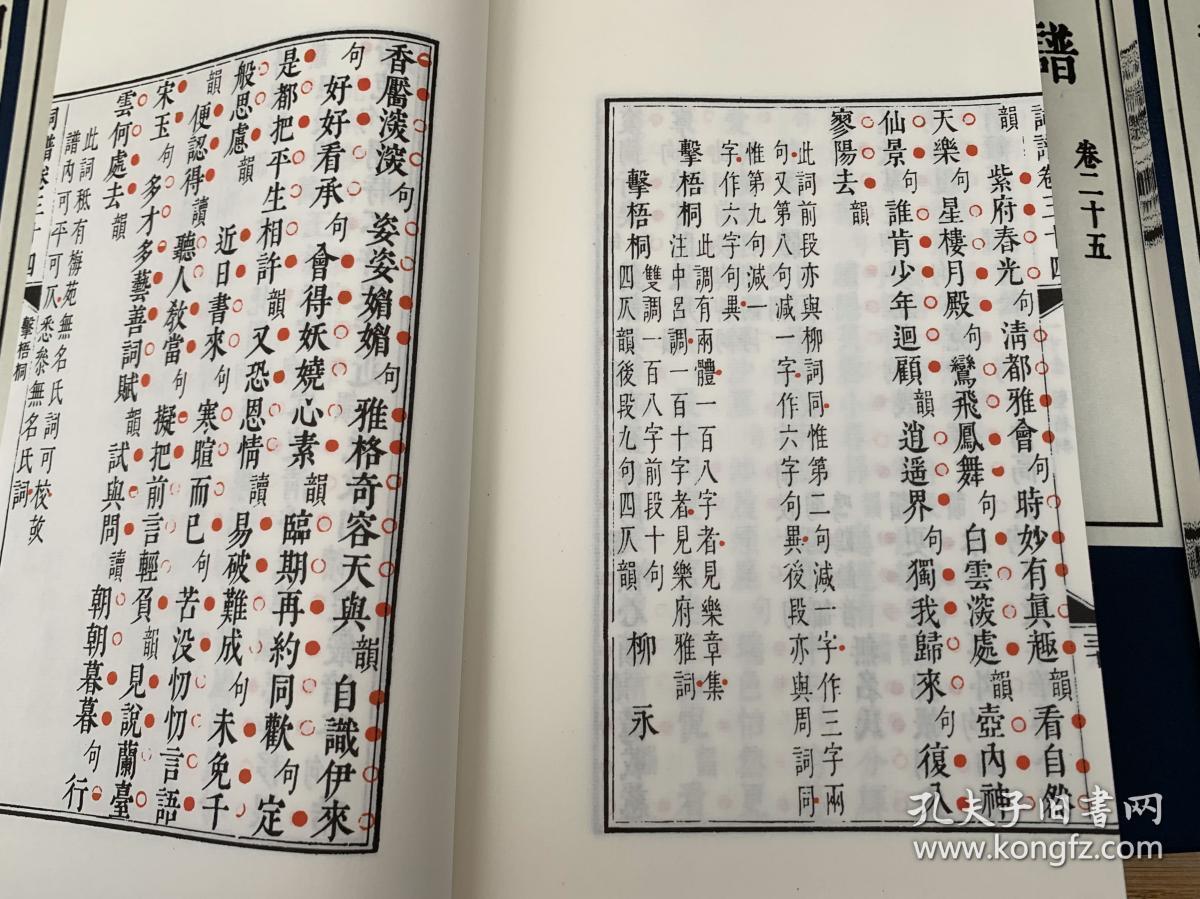 韻 紫府春光句清都雅會句時妙有真趣韻看自然
天樂句星樓月殿句鸞飛鳳舞句白雲深處韻壺內神
仙景句誰肯少年迴顧韻逍遥界句獨我歸來句復入
寥陽去韻
此詞前段亦與柳詞同惟第二句減一字作三字兩
句又第八句減一字作六字句異後段亦與周詞同
惟第九句減一
字作六字句異
擊梧桐 此調有兩體一百八字者見樂章集
注中呂調一百十字者見樂府雅詞
擊梧桐 雙調一百八字前段十句
四仄韻後段九句四仄韻 柳永
香靨深深句姿姿媚媚句雅格奇容天與韻自識伊來
句好好看承句會得妖嬈心素韻臨期再約同歡句定
是都把平生相許韻又恐恩情讀易破難成句未免千
般思慮韻 近日書來句寒暄而已句苦没忉忉言語
韻便認得讀聽人教當句擬把前言輕負韻見說蘭臺
宋玉句多才多藝善詞賦韻試與問讀朝朝暮暮句行
雲何處去韻
此詞秖有梅苑無名氏詞可校故
譜內可平可仄悉叅無名氏詞
詞譜卷三十四 擊梧桐
詞譜卷三十四
譜
卷二十五
孔夫子旧書网
www.kongfz.com